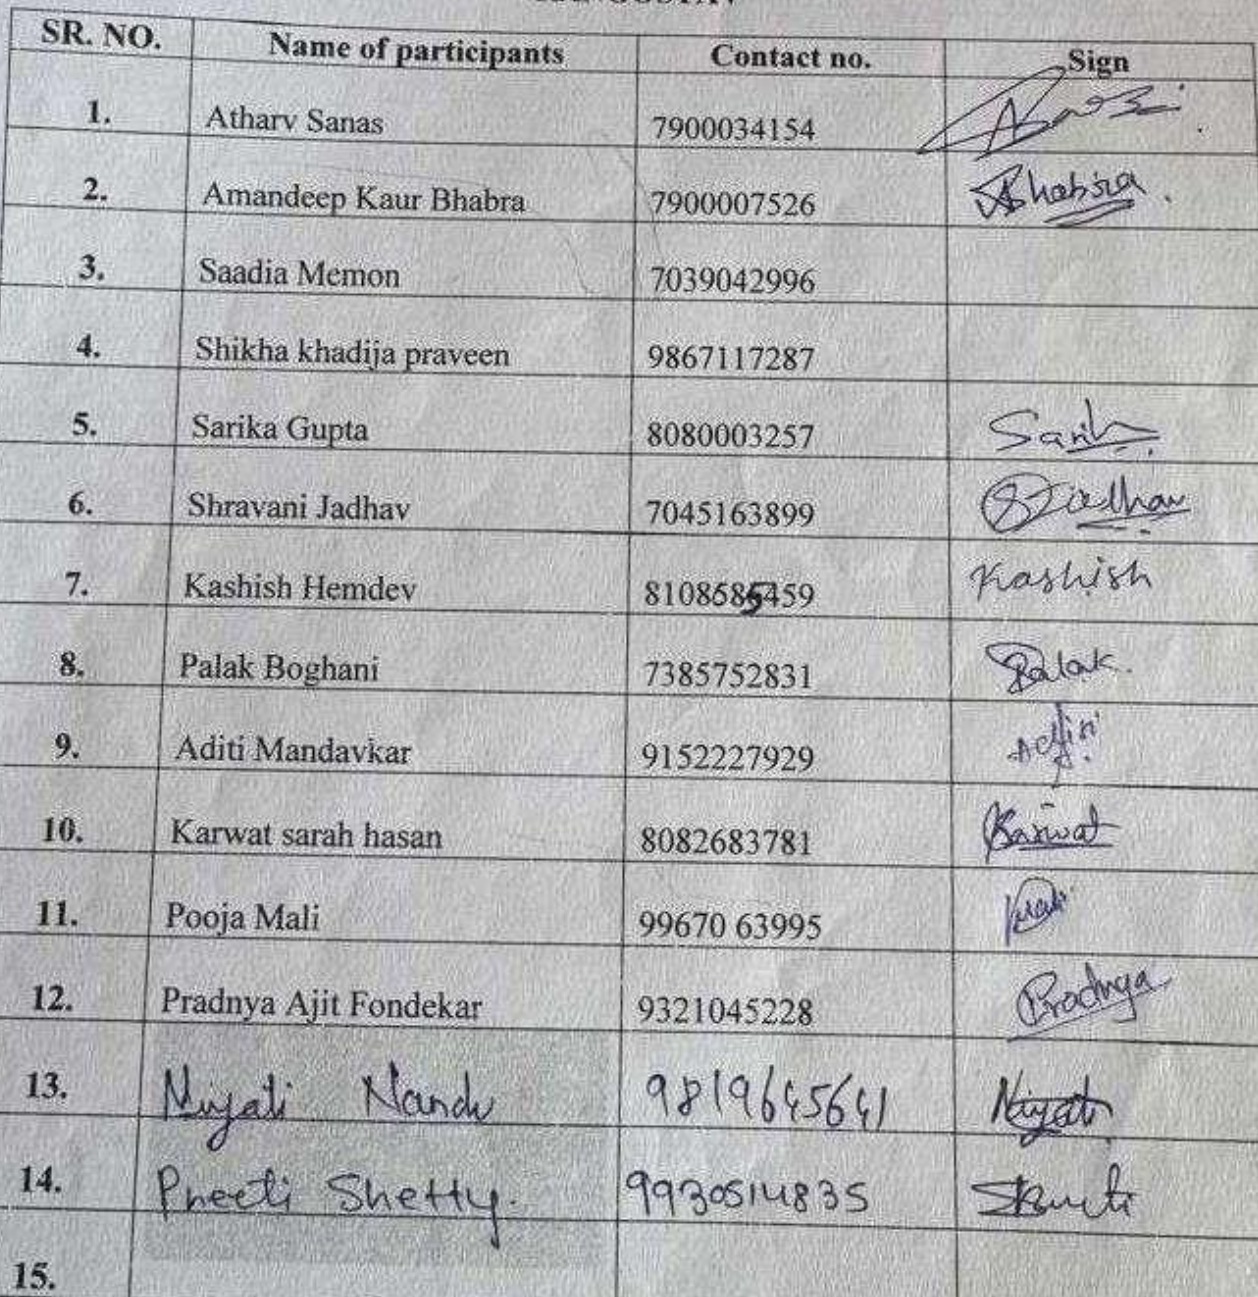 SR. NO. Name of participants Contact no. Sign
1. Atharv Sanas 7900034154
2. Amandeep Kaur Bhabra 7900007526 Bhabra.
3. Saadia Memon 7039042996
4. Shikha khadija praveen 9867117287
5. Sarika Gupta 8080003257
6. Shravani Jadhav 7045163899 SJadhav
7. Kashish Hemdev 8108585459 Kashish
8. Palak Boghani 7385752831 Palak.
9. Aditi Mandavkar 9152227929 Aditi
10. Karwat sarah hasan 8082683781 Karwat
11. Pooja Mali 99670 63995 Mali
12. Pradnya Ajit Fondekar 9321045228 Pradnya
13. Niyati Nandu 9819645641 Niyati
14. Preeti Shetty. 9930514835
15.